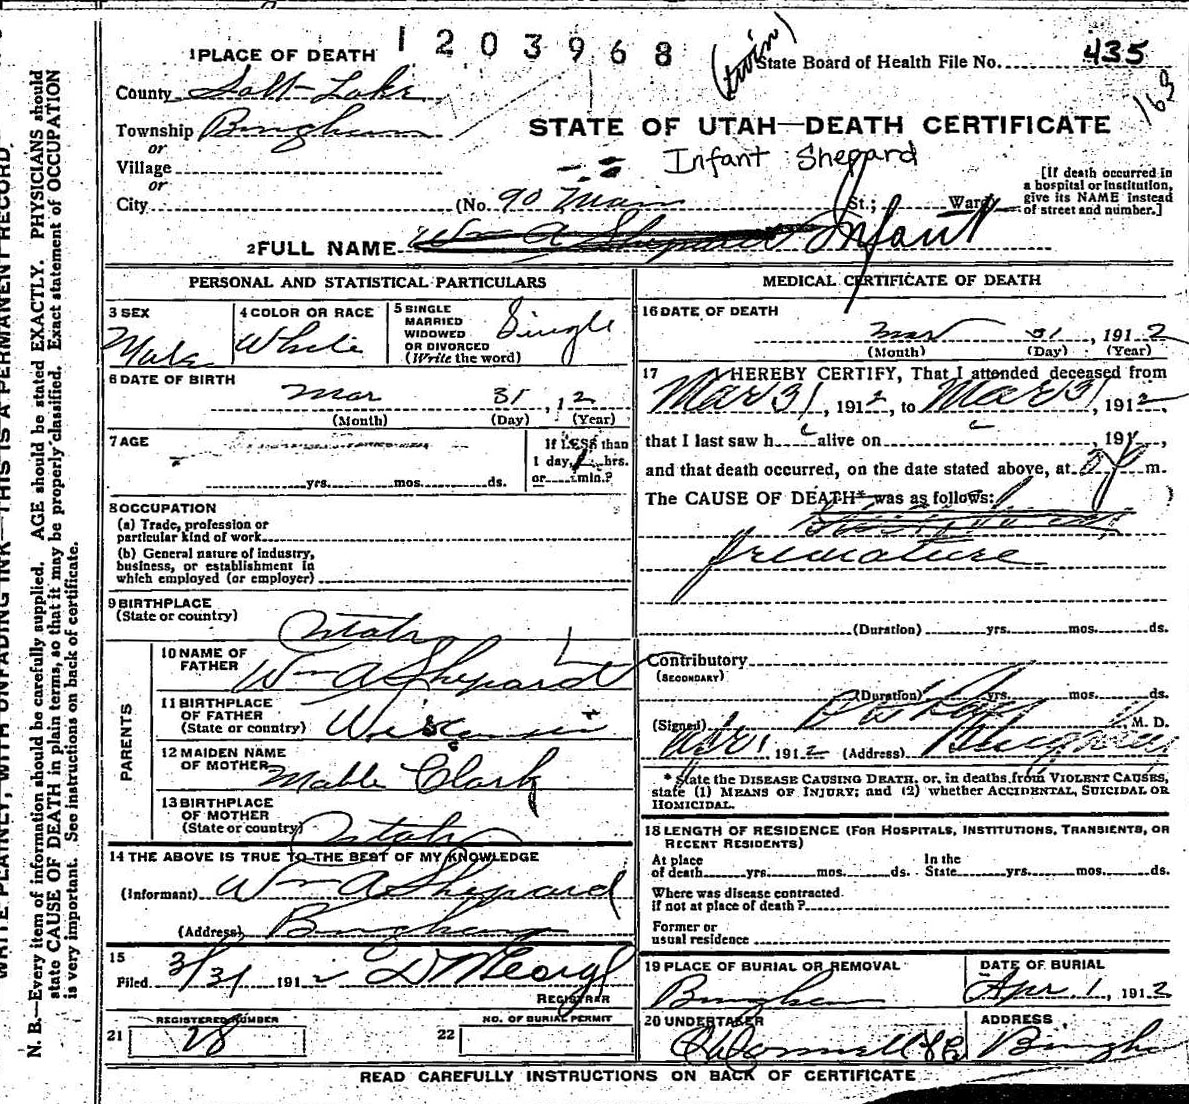 1203968
(twin)
1 PLACE OF DEATH
State Board of Health File No. 435
163
County Salt Lake
Township Bingham
or
STATE OF UTAH—DEATH CERTIFICATE
Village
Infant Shepard
or
[If death occurred in
a hospital or institution,
give its NAME instead
of street and number.]
City (No. 90 Main St.; Ward)
2 FULL NAME Wm A Shepard Infant
PERSONAL AND STATISTICAL PARTICULARS
3 SEX
Male
4 COLOR OR RACE
White
5 SINGLE
MARRIED
WIDOWED
OR DIVORCED
(Write the word)
Single
6 DATE OF BIRTH
Mar 31, 12
(Month) (Day) (Year)
7 AGE
If LESS than
1 day, hrs.
or min.?
yrs. mos. ds.
8 OCCUPATION
(a) Trade, profession or
particular kind of work
(b) General nature of industry,
business, or establishment in
which employed (or employer)
9 BIRTHPLACE
(State or country)
Utah
PARENTS
10 NAME OF
FATHER
Wm A Shepard
11 BIRTHPLACE
OF FATHER
(State or country)
Wisconsin
12 MAIDEN NAME
OF MOTHER
Mable Clark
13 BIRTHPLACE
OF MOTHER
(State or country)
Utah
14 THE ABOVE IS TRUE TO THE BEST OF MY KNOWLEDGE
(Informant) Wm A Shepard
(Address) Bingham
15
Filed 3/31 1912
REGISTRAR
21 REGISTERED NUMBER
28
22 NO. OF BURIAL PERMIT
MEDICAL CERTIFICATE OF DEATH
16 DATE OF DEATH
Mar 31, 1912
(Month) (Day) (Year)
17 I HEREBY CERTIFY, That I attended deceased from
Mar 31, 1912, to Mar 31, 1912,
that I last saw h alive on , 191 ,
and that death occurred, on the date stated above, at m.
The CAUSE OF DEATH* was as follows:
Premature
(Duration) yrs. mos. ds.
Contributory
(SECONDARY)
(Duration) yrs. mos. ds.
(Signed) M. D.
Apr 1 1912 (Address) Bingham
* State the DISEASE CAUSING DEATH, or, in deaths from VIOLENT CAUSES,
state (1) MEANS OF INJURY; and (2) whether ACCIDENTAL, SUICIDAL OR
HOMICIDAL.
18 LENGTH OF RESIDENCE (FOR HOSPITALS, INSTITUTIONS, TRANSIENTS, OR
RECENT RESIDENTS)
At place
of death yrs. mos. ds.
In the
State yrs. mos. ds.
Where was disease contracted
if not at place of death?
Former or
usual residence
19 PLACE OF BURIAL OR REMOVAL
Bingham
DATE OF BURIAL
Apr. 1, 1912
20 UNDERTAKER
ADDRESS
Bingham
READ CAREFULLY INSTRUCTIONS ON BACK OF CERTIFICATE
WRITE PLAINLY, WITH UNFADING INK—THIS IS A PERMANENT RECORD.
N. B.—Every item of information should be carefully supplied. AGE should be stated EXACTLY. PHYSICIANS should
state CAUSE OF DEATH in plain terms, so that it may be properly classified. Exact statement of OCCUPATION
is very important. See instructions on back of certificate.